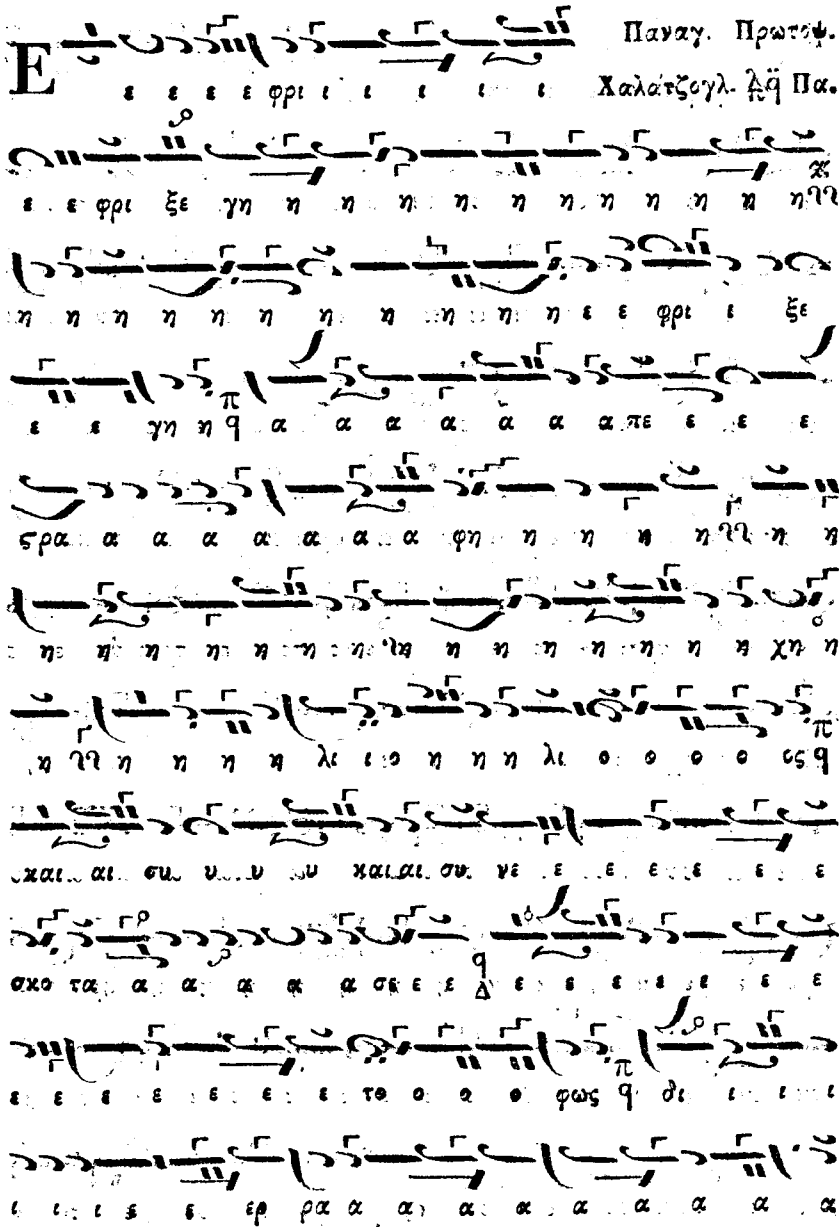 Παναγ. Πρωτοψ.
Ε ε ε ε ε φρι ι ι ι ι ι Χαλάτζογλ. Πα.
ε ε φρι ξε γη η η η η η η η η η η η
η η η η η η η η η η η ε ε φρι ι ξε
ε ε γη η π q α α α α α α α πε ε ε ε
ςρα α α α α α α α φη η η η η η η
η η η η η η η η η η η η η χη η
η η η η η λι ι ο η η η λι ο ο ο ο ος π q
και αι συ υ υ υ και αι συ νε ε ε ε ε ε ε
σκο τα α α α α α σε ε ε q Δ ε ε ε ε ε ε ε
ε ε ε ε ε ε ε το ο ο ο φως π q δι ι ι ι
ι ι ι ε ε ερ ρα α α α α α α α α α α